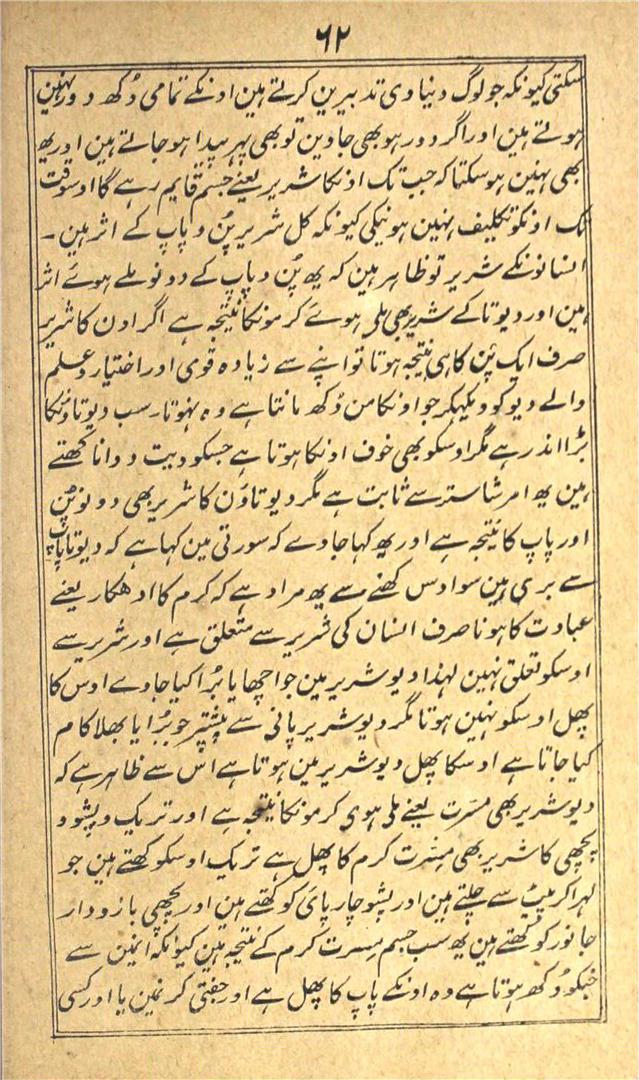 ۶۲
سکتی کیونکہ جو لوگ دنیاوی تدبیرین کرتے ہین اونکے تمامی دُکھ دور نہین
ہوتے ہین اور اگر دور ہو بھی جاوین تو بھی پہر پیدا ہو جاتے ہین اور یھ
بھی نہین ہوسکتا کہ جب تک اونکا شریر یعنے جسم قایم رہے گا اوسوقت
تک اونکو تکلیف نہین ہوئیگی کیونکہ کل شریر پُن و پاپ کے اثر ہین ۔
انسانونکے شریر تو ظاہر ہین کہ یھ پُن و پاپ کے دونو ملے ہوئے اثر
ہین اور دیوتا کے شریر بھی ملی ہوئے کرمونکا نتیجہ ہے اگر اون کا شریر
صرف ایک پُن کا ہی نتیجہ ہوتا تو اپنے سے زیادہ قوی اور اختیار و علم
والے دیو کو دیکہکر جو اونکا من دُکھ مانتا ہے وہ نہوتا ۔ سب دیوتاونکا
بڑا اندر ہے مگر اوسکو بھی خوف اونکا ہوتا ہے جسکو دیت و دانا کہتے
ہین یھ امر شاستر سے ثابت ہے مگر دیوتاؤن کا شریر بھی دونو پُن
اور پاپ کا نتیجہ ہے اور یھ کہا جاوے کہ سورتی مین کہا ہے کہ دیوتا پاپ
سے بری ہین سو اوس کہنے سے یھ مراد ہے کہ کرم کا ادھکار یعنے
عبادت کا ہونا صرف انسان کی شریر سے متعلق ہے اور شریر سے
اوسکو تعلق نہین لہذا دیو شریر مین جو اچھا یا بُرا کیا جاوے اوس کا
پھل اوسکو نہین ہوتا مگر دیو شریر پانی سے پیشتر جو بُرا یا بھلا کام
کیا جاتا ہے اوسکا پھل دیو شریر مین ہوتا ہے اس سے ظاہر ہے کہ
دیو شریر بھی مسرت یعنے ملی ہوی کرمونکا نتیجہ ہے اور تریک و پشو و
پچھی کا شریر بھی مسرت کرم کا پھل ہے تریک اوسکو کہتے ہین جو
لہرا کر پیٹ سے چلتے ہین اور پشو چار پائے کو کہتے ہین اور پچھی بازو دار
جانور کو کہتے ہین یھ سب جسم مسرت کرم کے نتیجہ ہین کیونکہ انمین سے
جنکو دُکھ ہوتا ہے وہ اونکے پاپ کا پھل ہے اور جفتی کرنمین یا اور کسی